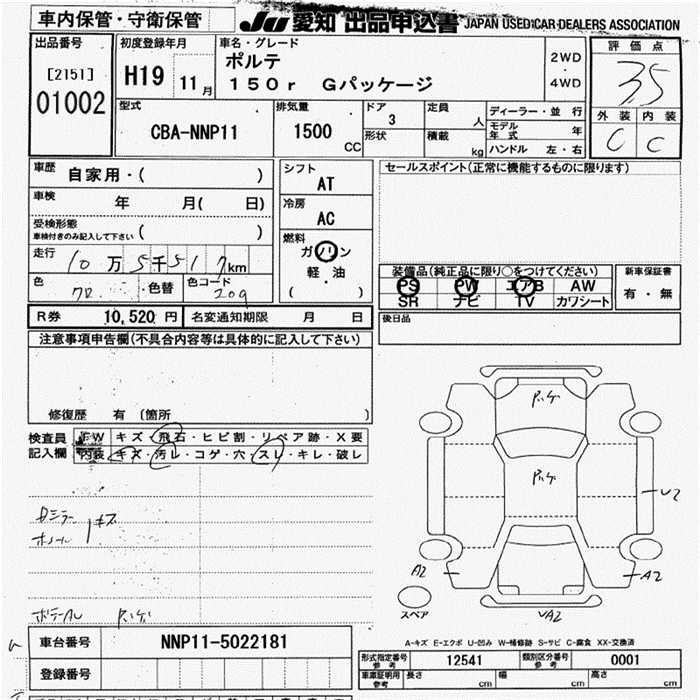 車内保管・守衛保管
JU 愛知 出品申込書 JAPAN USED CAR DEALERS ASSOCIATION
出品番号
[2151]
01002
初度登録年月
H19 11月
車名・グレード
ポルテ
150r Gパッケージ
2WD
・
4WD
評価点
3.5
外装 内装
C C
型式
CBA-NNP11
排気量
1500
CC
ドア
3
形状
定員
人
積載
kg
ディーラー・並行
モデル年式 年
ハンドル 左・右
車歴
自家用・( )
車検
年 月( 日)
受検形態
車検付きのみ記入して下さい ( )
走行
10万5千517km
色
・色替
色コード
209
シフト
AT
冷房
AC
燃料
ガソリン
軽・油
( )
セールスポイント(正常に機能するものに限ります)
装備品(純正品に限り○をつけてください)
PS PW エアB AW
SR ナビ TV カワシート
新車保証書
有・無
後日品
R券 10,520 円 名変通知期限 月 日
注意事項申告欄(不具合内容等は具体的に記入して下さい)
修復歴 有 (箇所 )
検査員
記入欄
FW キズ・飛石・ヒビ割・リペア跡・X要
内装 キズ・汚レ・コゲ・穴・スレ・キレ・破レ
キズ
U2
A2
A2
UA2
スペア
A-キズ E-エクボ U-凹み W-補修跡 S-サビ C-腐食 XX-交換済
車台番号 NNP11-5022181
登録番号
形式指定番号 参考 12541
類別区分番号 参考 0001
車庫証明用 参考 長さ 幅 高さ